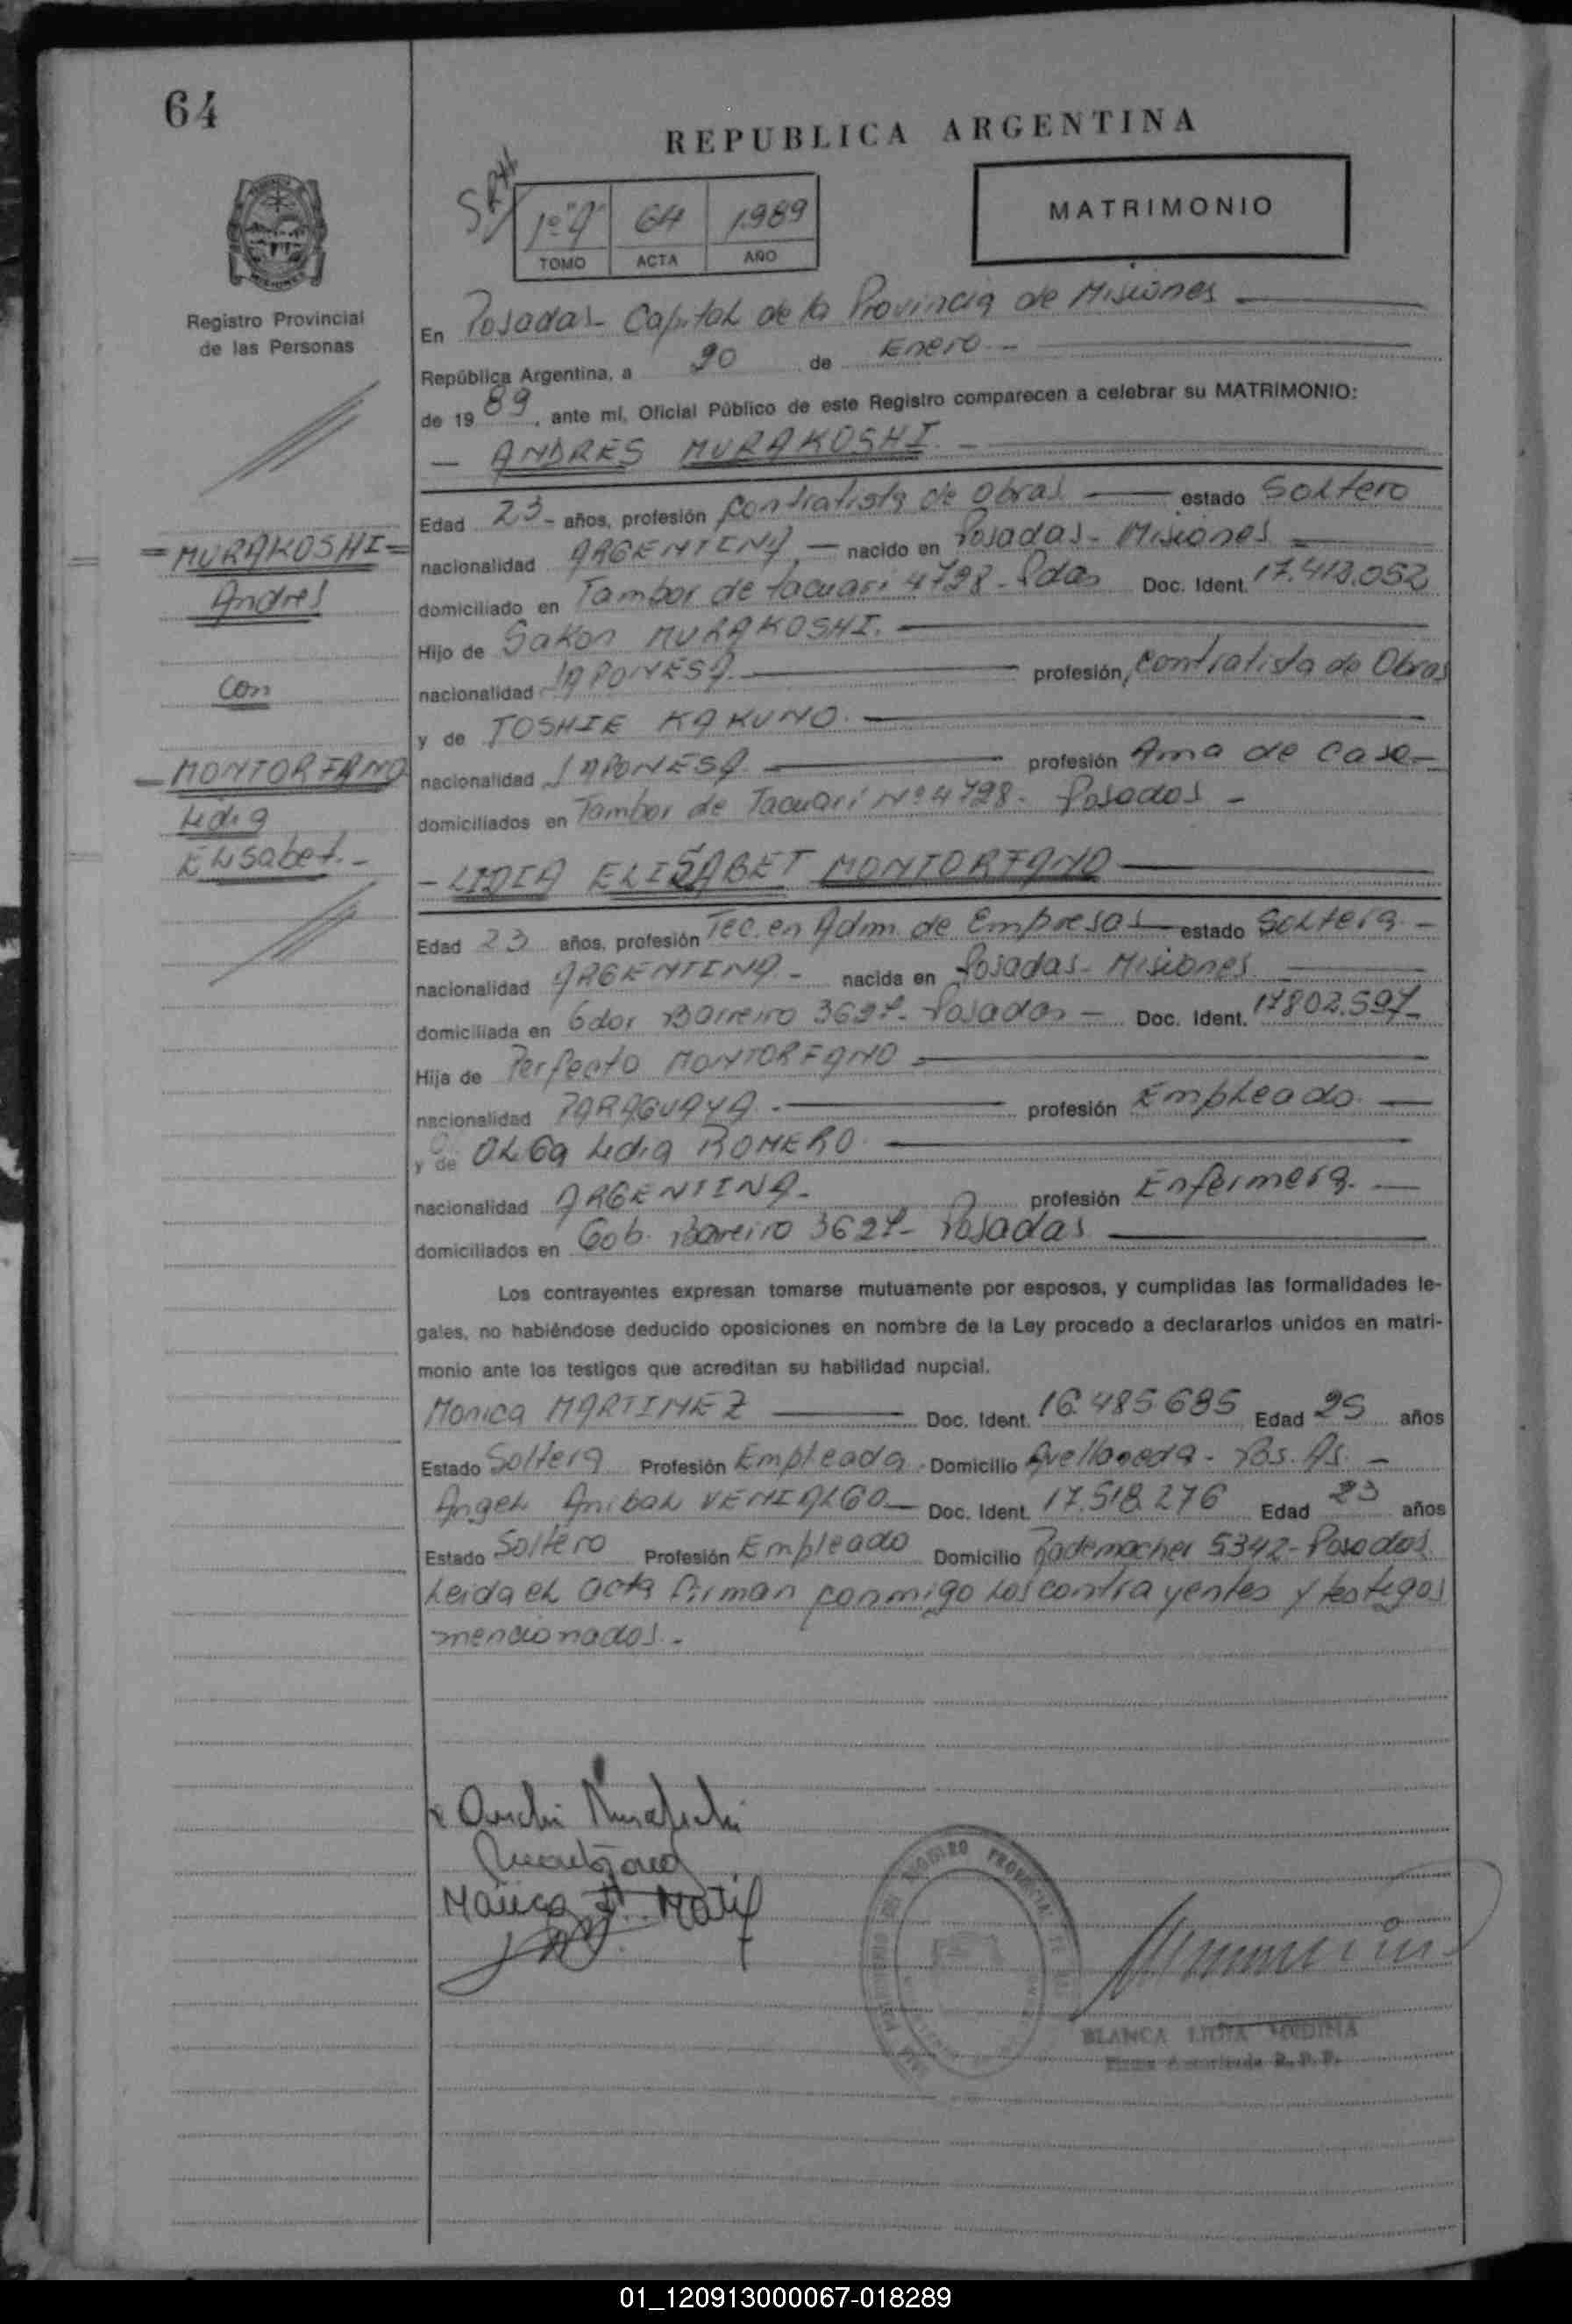 64
REPUBLICA ARGENTINA
1º "A" 64 1989
TOMO ACTA AÑO
MATRIMONIO
Registro Provincial
de las Personas
En Posadas - Capital de la Provincia de Misiones
República Argentina, a 20 de Enero -
de 19 89, ante mí, Oficial Público de este Registro comparecen a celebrar su MATRIMONIO:
- ANDRES MURAKOSHI. -
Edad 23 - años, profesión contratista de Obras estado Soltero
= MURAKOSHI =
nacionalidad ARGENTINA - nacido en Posadas - Misiones
Andres
domiciliado en Tambor de tacuari 4728 - Pdas Doc. Ident. 17.412.052
Hijo de Sakon MURAKOSHI.
con
nacionalidad JAPONESA. profesión, contratista de Obras
y de TOSHIE KAKUNO.
- MONTORFANO
nacionalidad JAPONESA. profesión Ama de casa -
Lidia
domiciliados en Tambor de Tacuari Nº 4728 - Posadas -
Elisabet. -
- LIDIA ELISABET MONTORFANO
Edad 23 años, profesión Tec. en Adm. de Empresas estado Soltera -
nacionalidad ARGENTINA - nacida en Posadas - Misiones
domiciliada en Gdor Barreiro 3627 - Posadas - Doc. Ident. 17802.597 -
Hija de Perfecto MONTORFANO
nacionalidad PARAGUAYA. profesión Empleado. -
y de OLGa Lidia ROMERO.
nacionalidad ARGENTINA. profesión Enfermera. -
domiciliados en Gob. Barreiro 3627 - Posadas
Los contrayentes expresan tomarse mutuamente por esposos, y cumplidas las formalidades le-
gales, no habiéndose deducido oposiciones en nombre de la Ley procedo a declararlos unidos en matri-
monio ante los testigos que acreditan su habilidad nupcial.
Monica MARTINEZ Doc. Ident. 16.485.685 Edad 25 años
Estado Soltera Profesión Empleada - Domicilio Avellaneda - Bs. As. -
Angel Anibal VENIALGO - Doc. Ident. 17.518.276 Edad 23 años
Estado Soltero Profesión Empleado Domicilio Rademacher 5342 - Posadas
Leida el acta firman conmigo los contrayentes y testigos
mencionados. -
BLANCA LIDIA MEDINA
Firma Autorizada R. P. P.
01_120913000067-018289